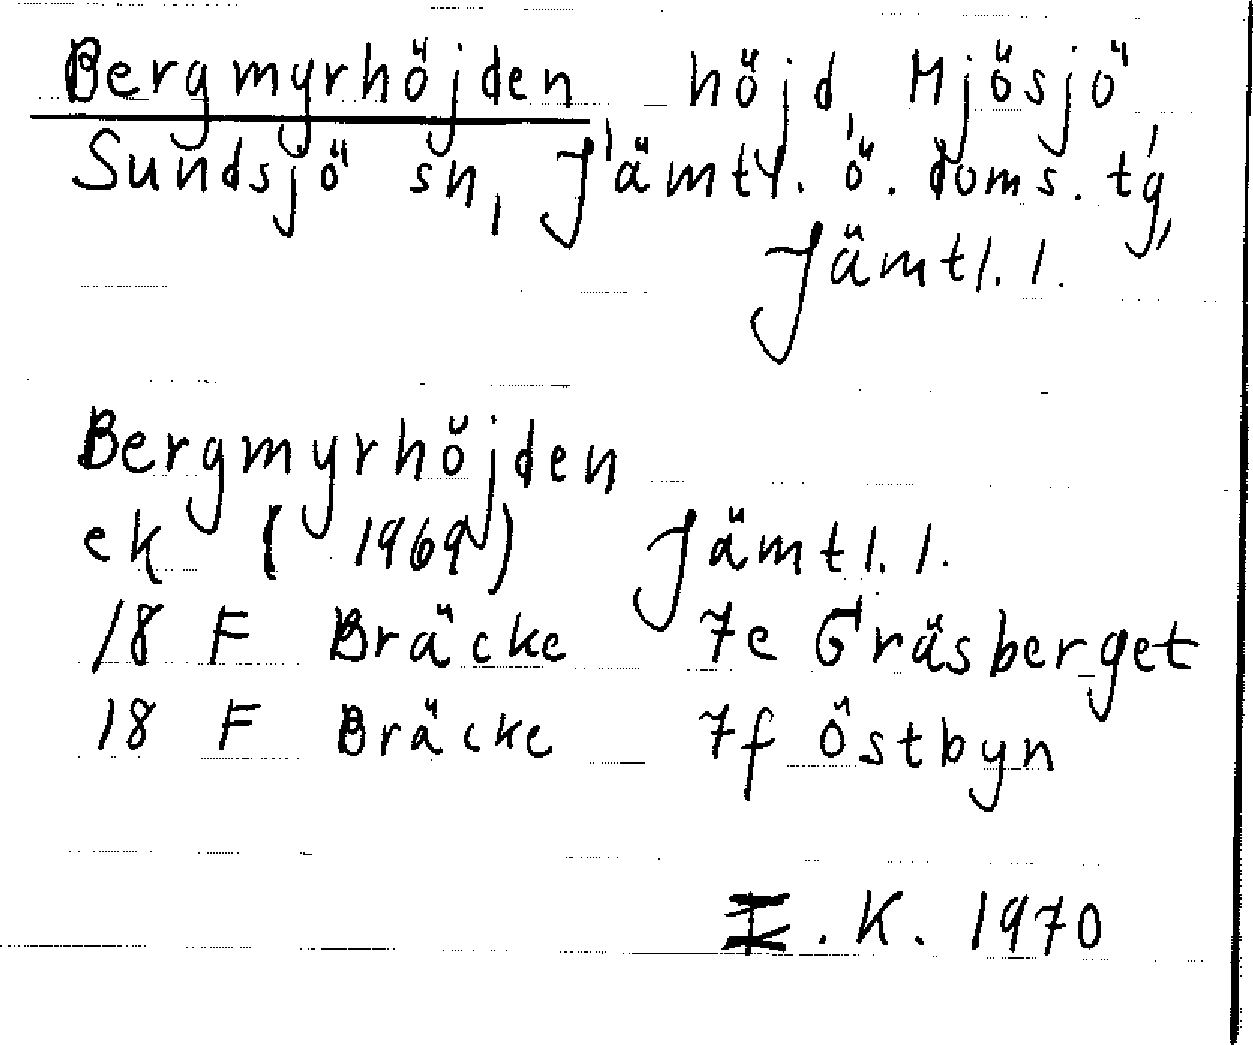 Bergmyrhöjden, höjd, Mjösjö,
Sundsjö sn, Jämtl. ö. doms. tg,
Jämtl. l.
Bergmyrhöjden
ek (1969) Jämtl. l.
18 F Bräcke 7e Gräsberget
18 F Bräcke 7f Östbyn
I. K. 1970